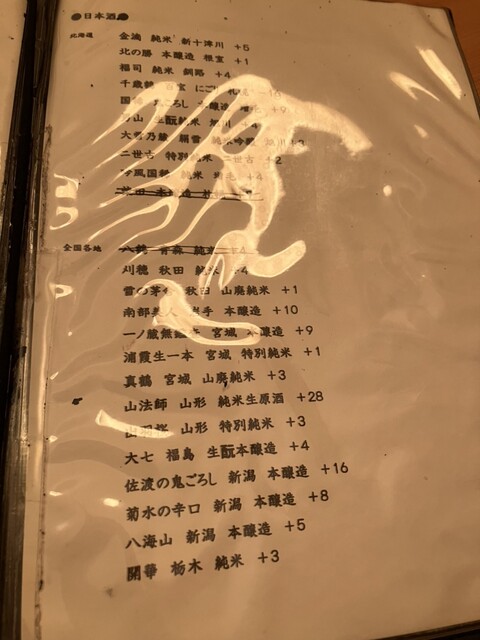 ●日本酒●
北海道
金滴 純米 新十津川 +5
北の勝 本醸造 根室 +1
福司 純米 釧路 +4
千歳鶴 にごり
国稀 鬼ごろし 本醸造 増毛 +9
男山 生酛純米 旭川
大雪乃蔵 絹雪 純米吟醸 旭川
二世古 特別純米 二世古 +2
純米 +4
全国各地
八鶴 青森 純米
刈穂 秋田 純米 +4
雪の茅舎 秋田 山廃純米 +1
南部美人 岩手 本醸造 +10
一ノ蔵無鑑査 宮城 本醸造 +9
浦霞生一本 宮城 特別純米 +1
真鶴 宮城 山廃純米 +3
山法師 山形 純米生原酒 +28
出羽桜 山形 特別純米 +3
大七 福島 生酛本醸造 +4
佐渡の鬼ごろし 新潟 本醸造 +16
菊水の辛口 新潟 本醸造 +8
八海山 新潟 本醸造 +5
開華 栃木 純米 +3